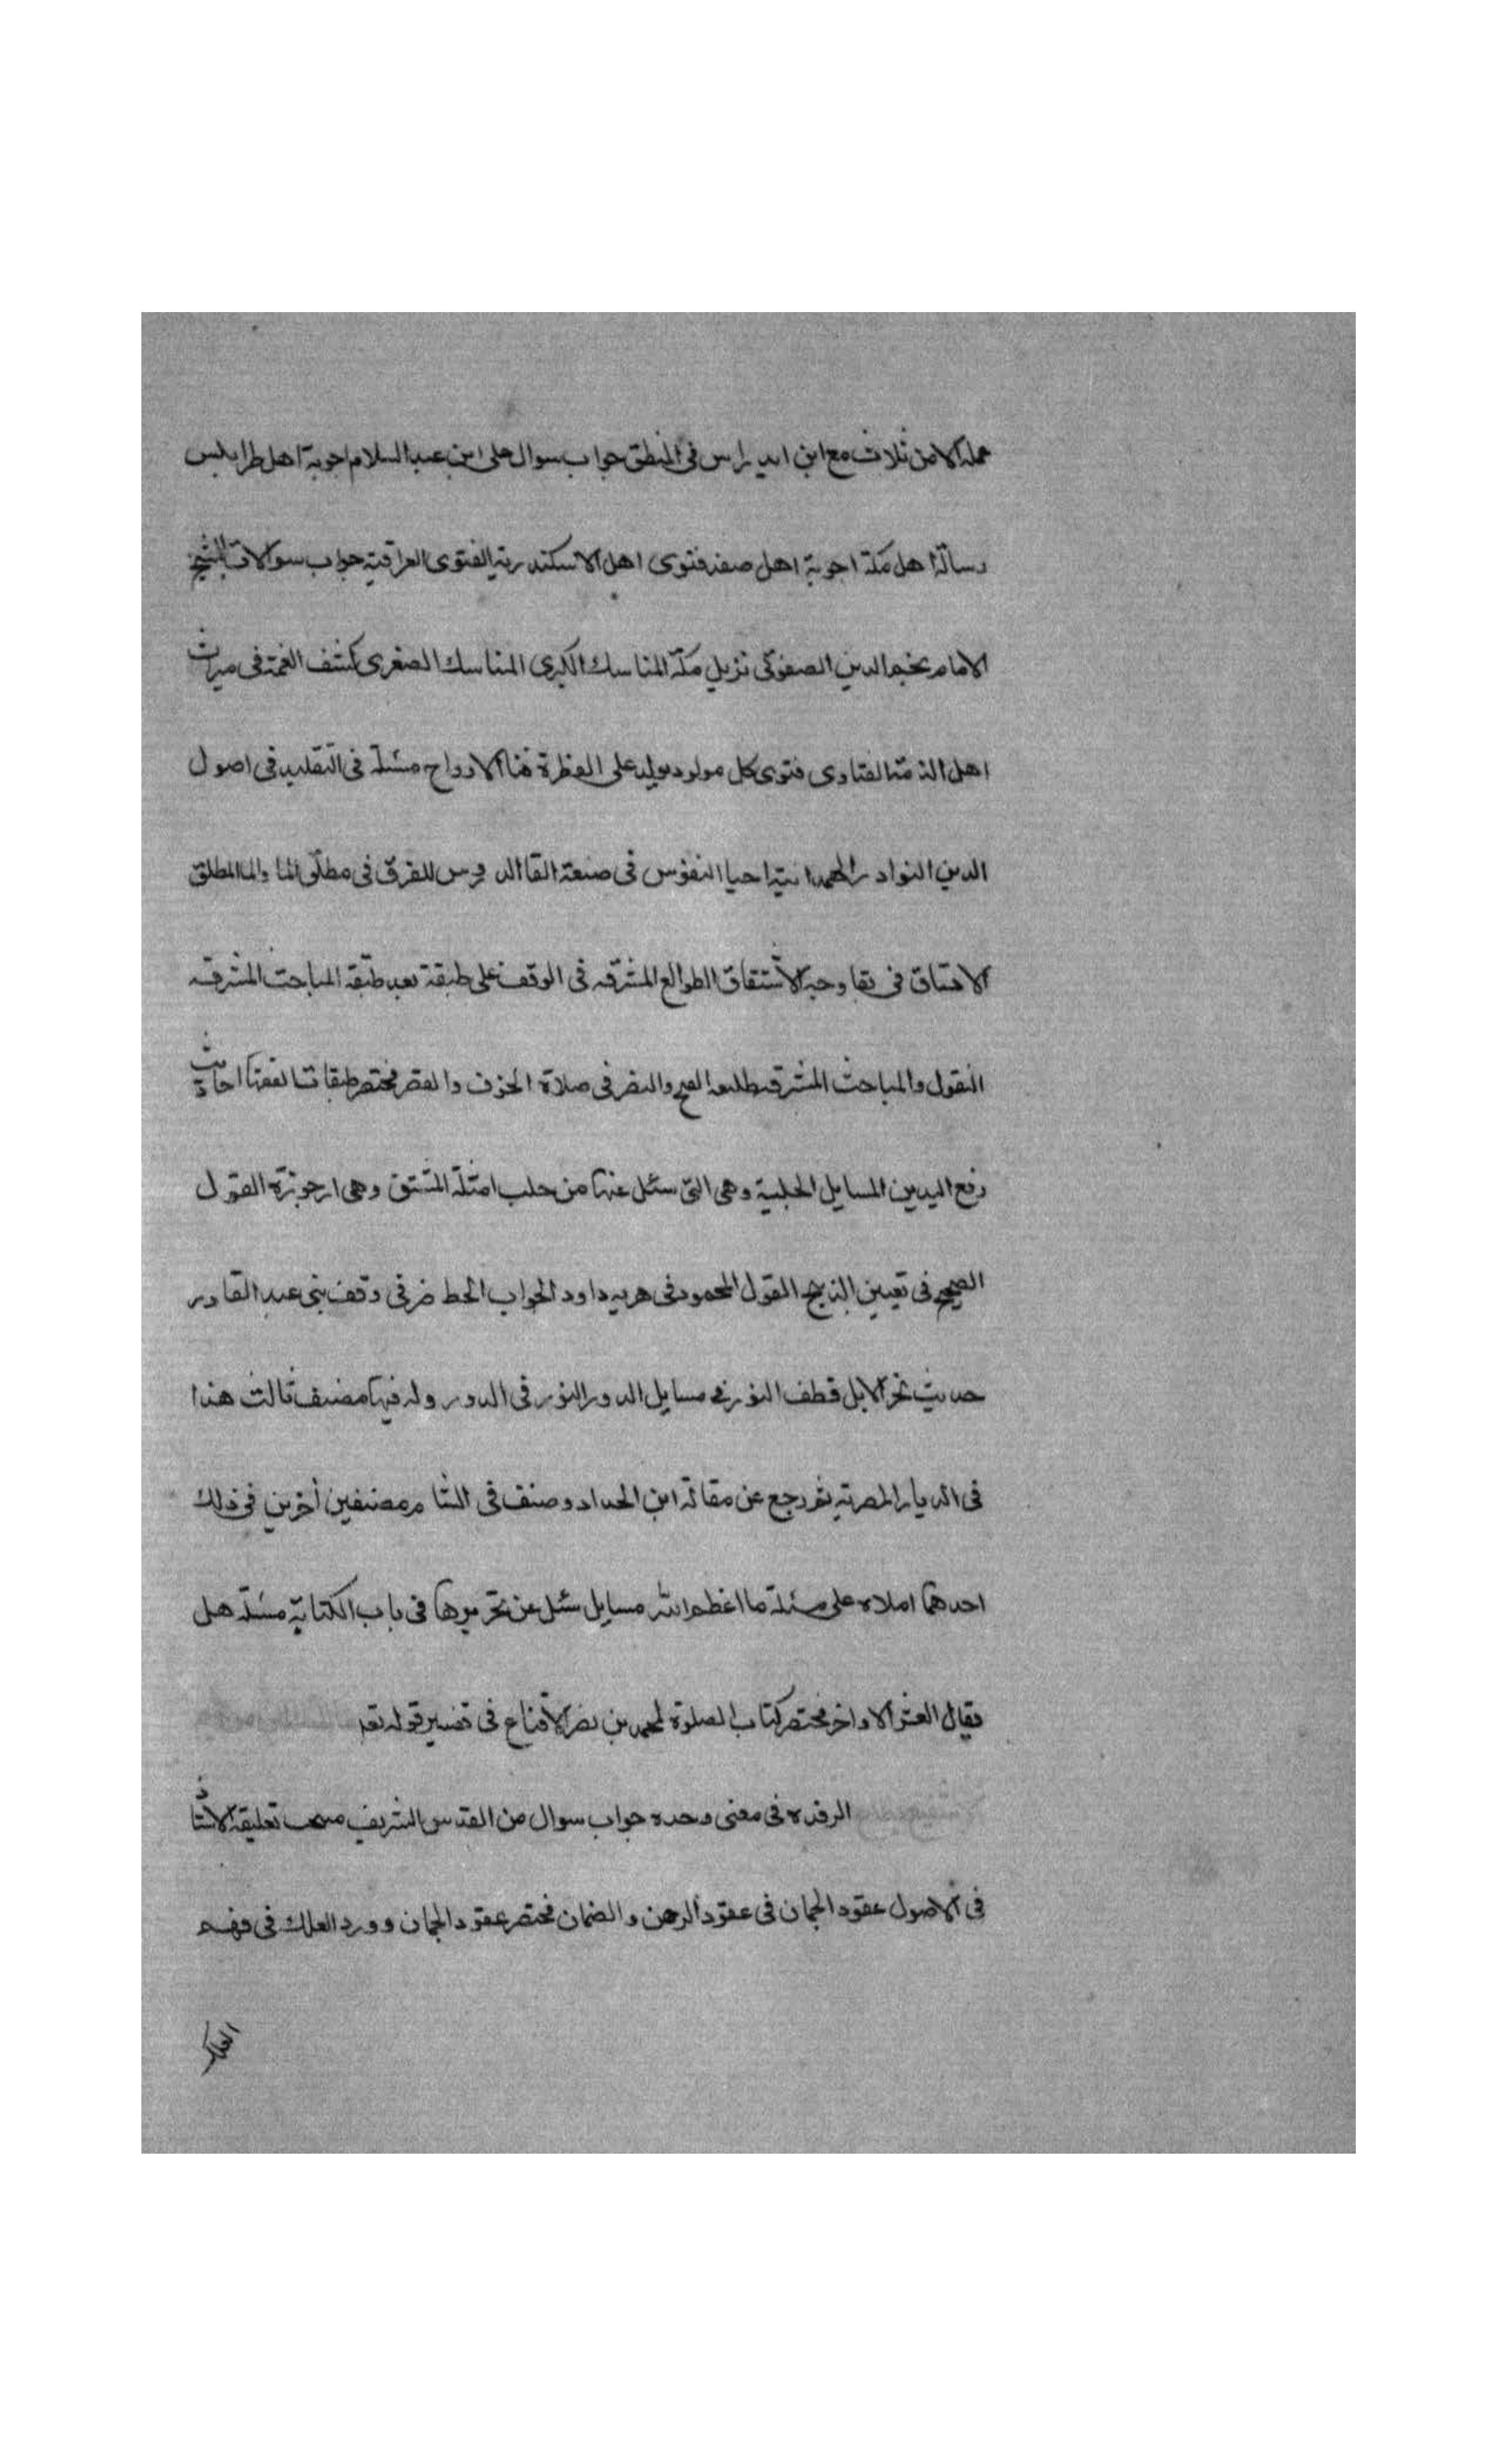 عمله الامن ثلاث مع ابن في المنطق جواب سوال على ابن عبد السلام اجوبة اهل طرابلس
رسالة اهل مكة اجوبة اهل صفد فتوى اهل الاسكندرية الفتوى العراقية جواب سوالات الشيخ
الامام نجم الدين الصفوى نزيل مكة المناسك الكبرى المناسك الصغرى كشف الغمة فى ميراث
اهل الذمة الفتاوى فتوى كل مولود يولد على الفطرة فنا الارواح مسئلة فى التقليد فى اصول
الدين النوادر الهمدانية احيا النفوس فى صنعة القا الدروس للفرق فى مطلق الما والما المطلق
فى بقا وجه الاشتقاق الطوالع المشرقه فى الوقف على طبقة بعد طبقة المباحث المشرقه
النقول والمباحث المشرقه طليعة الفتح والنصر فى صلاة الخوف والقصر مختصر طبقات الفقها احاديث
رفع اليدين المسايل الحلبية وهى التى سئل عنها من حلب امثلة المشتق وهى ارجوزة القول
الصحيح فى تعيين الذبيح القول المحمود فى داود الجواب الحاضر فى وقف بنى عبد القادر
حديث نحر الابل قطف النور فى مسايل الدور النور فى الدور وله فيها مصنف ثالث هذا
فى الديار المصرية ثم رجع عن مقالة ابن الحداد وصنف فى الشام مصنفين أخرين فى ذلك
احدهما املاه على مسئلة ما اعظم الله مسايل سئل عن تحريرها فى باب الكتابة مسئلة هل
يقال العشر الاواخر مختصر كتاب الصلوة لمحمد بن نصر الاقناع فى تفسير قوله تعـ
الرفده فى معنى وحده جواب سوال من القدس الشريف تعليقة الاستاذ
فى الاصول عقود الجمان فى عقود الرهن والضمان مختصر عقود الجمان وورد العلل فى فهم
العلل